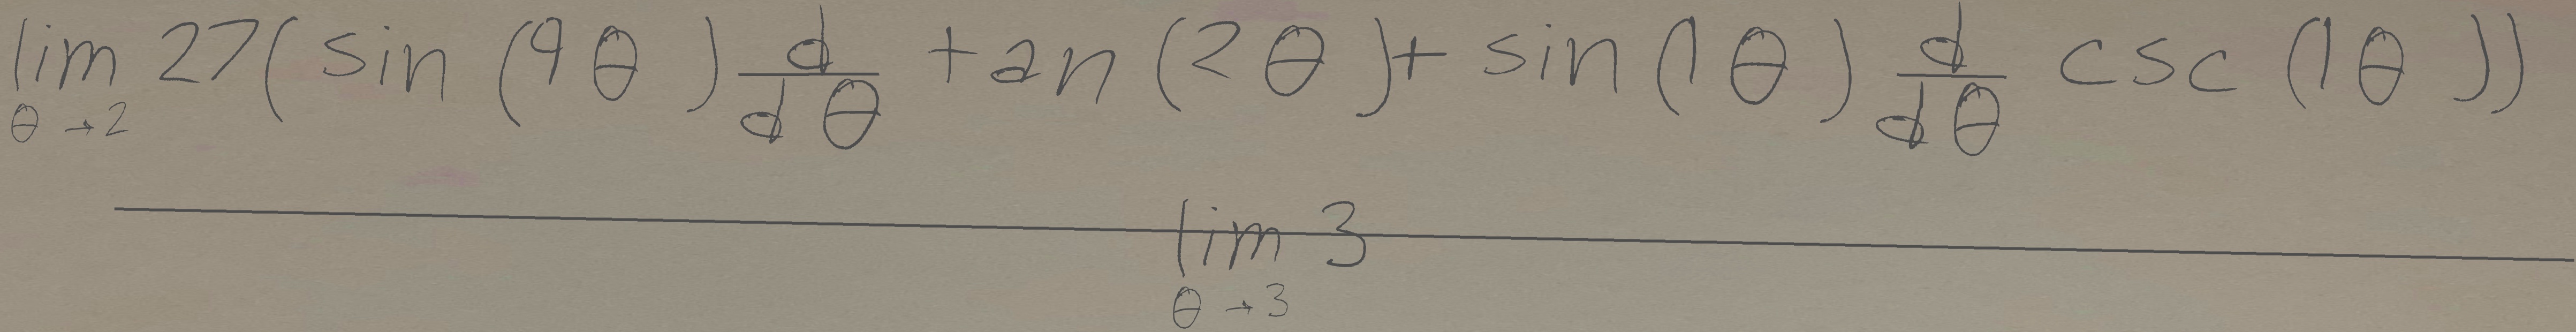 \frac{\lim_{\theta \to 2} 27(\sin(9\theta)\frac{d}{d\theta} \tan(2\theta) + \sin(1\theta)\frac{d}{d\theta} \csc(1\theta))}{\lim_{\theta \to 3} 3}